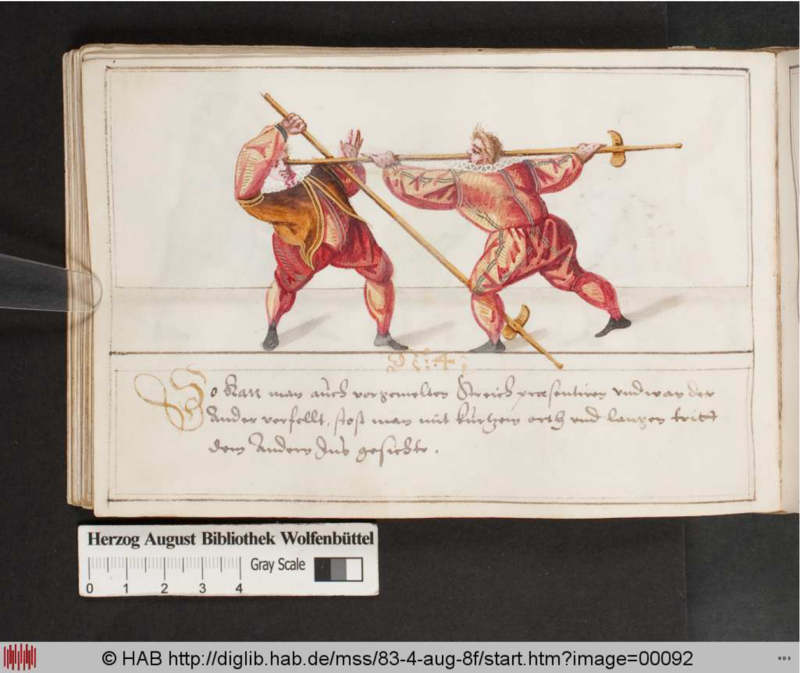 N: 4
So Kan man auch vorgemelten Streich præsentiren vnd wan der
Ander verfellt, stost man mit kurtzem orth vnd langen tritt
dem Andern Ins gesichte.
Herzog August Bibliothek Wolfenbüttel
Gray Scale
0 1 2 3 4
© HAB http://diglib.hab.de/mss/83-4-aug-8f/start.htm?image=00092